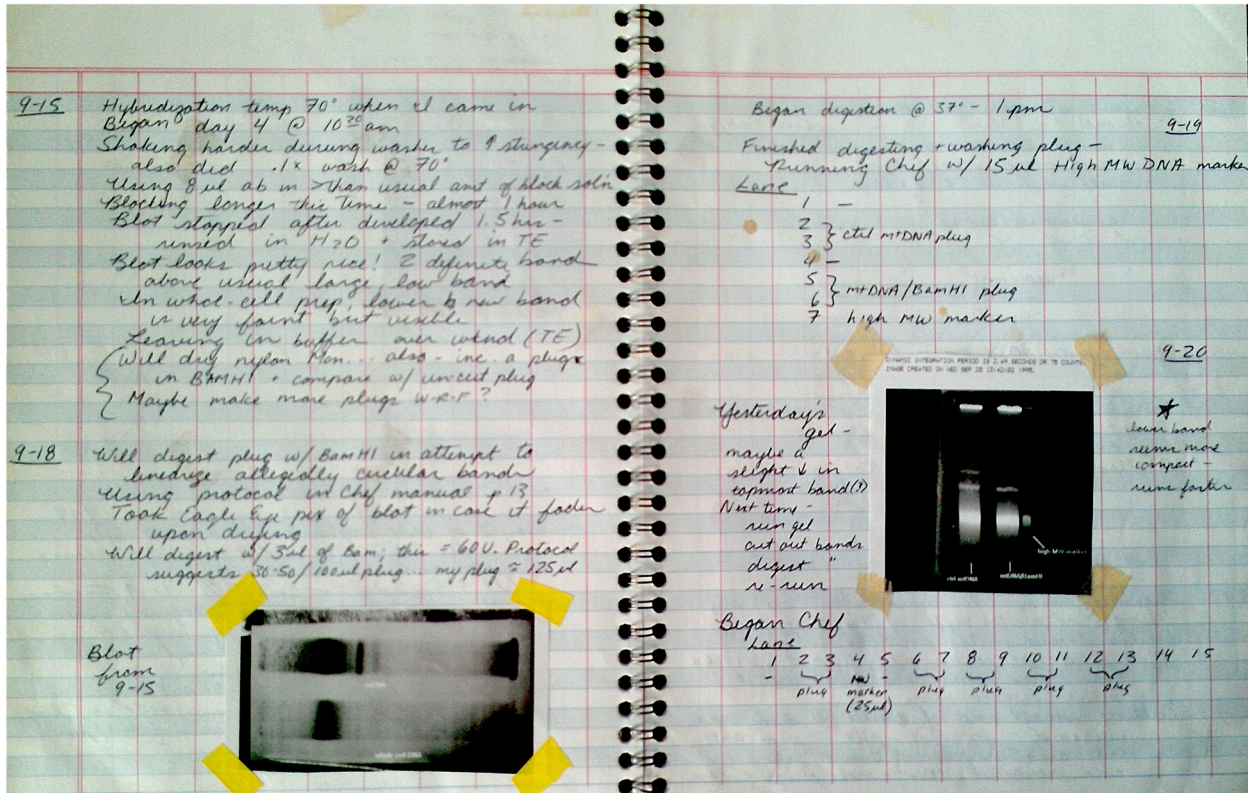 9-15
Hybridization temp 70° when I came in
Began day 4 @ 10 30 am
Shaking harder during washes to ↑ stringency -
also did .1x wash @ 70°
Using 8 ul ab in > than usual amt of block soln
Blocking longer this time - almost 1 hour
Blot stopped after developed 1.5 hrs -
rinsed in H2O + stored in TE
Blot looks pretty nice! 2 definite band
above usual large, low band
In whole-cell prep, lower new band
is very faint but visible
Leaving in buffer over wknd (TE)
Will dry nylon Mon... also - inc. a plug
in BAMHI + compare w/ uncut plug
Maybe make more plugs W-R-F?
9-18
Will digest plug w/ BamHI in attempt to
linearize allegedly circular bands
Using protocol in Chef manual p 13
Took Eagle Eye pix of blot in case it fades
upon drying
Will digest w/ 3ul of Bam; this = 60U. Protocol
suggests 30-50/100ul plug... my plug ≈ 125ul
Blot
from
9-15
whole cell DNA
Began digestion @ 37° - 1pm
9-19
Finished digesting + washing plug -
Running Chef w/ 15 ul High MW DNA marker
Lane
1 -
2
3 } ctrl mtDNA plug
4 -
5
6 } mtDNA/BamHI plug
7 high MW marker
9-20
DYNAMIC INTEGRATION PERIOD IS 2.49 SECONDS OR 75 COUNTS
IMAGE CREATED ON WED SEP 20 1995.
Yesterday's
gel -
maybe a
slight ↓ in
topmost band (?)
Next time -
run gel
cut out bands
digest "
re-run
high MW marker
ctrl mtDNA
mtDNA/BamHI
★
lower band
runs more
compact -
runs faster
Began Chef
Lane
1 2 3 4 5 6 7 8 9 10 11 12 13 14 15
- plug MW - plug plug plug plug
marker
(25ul)